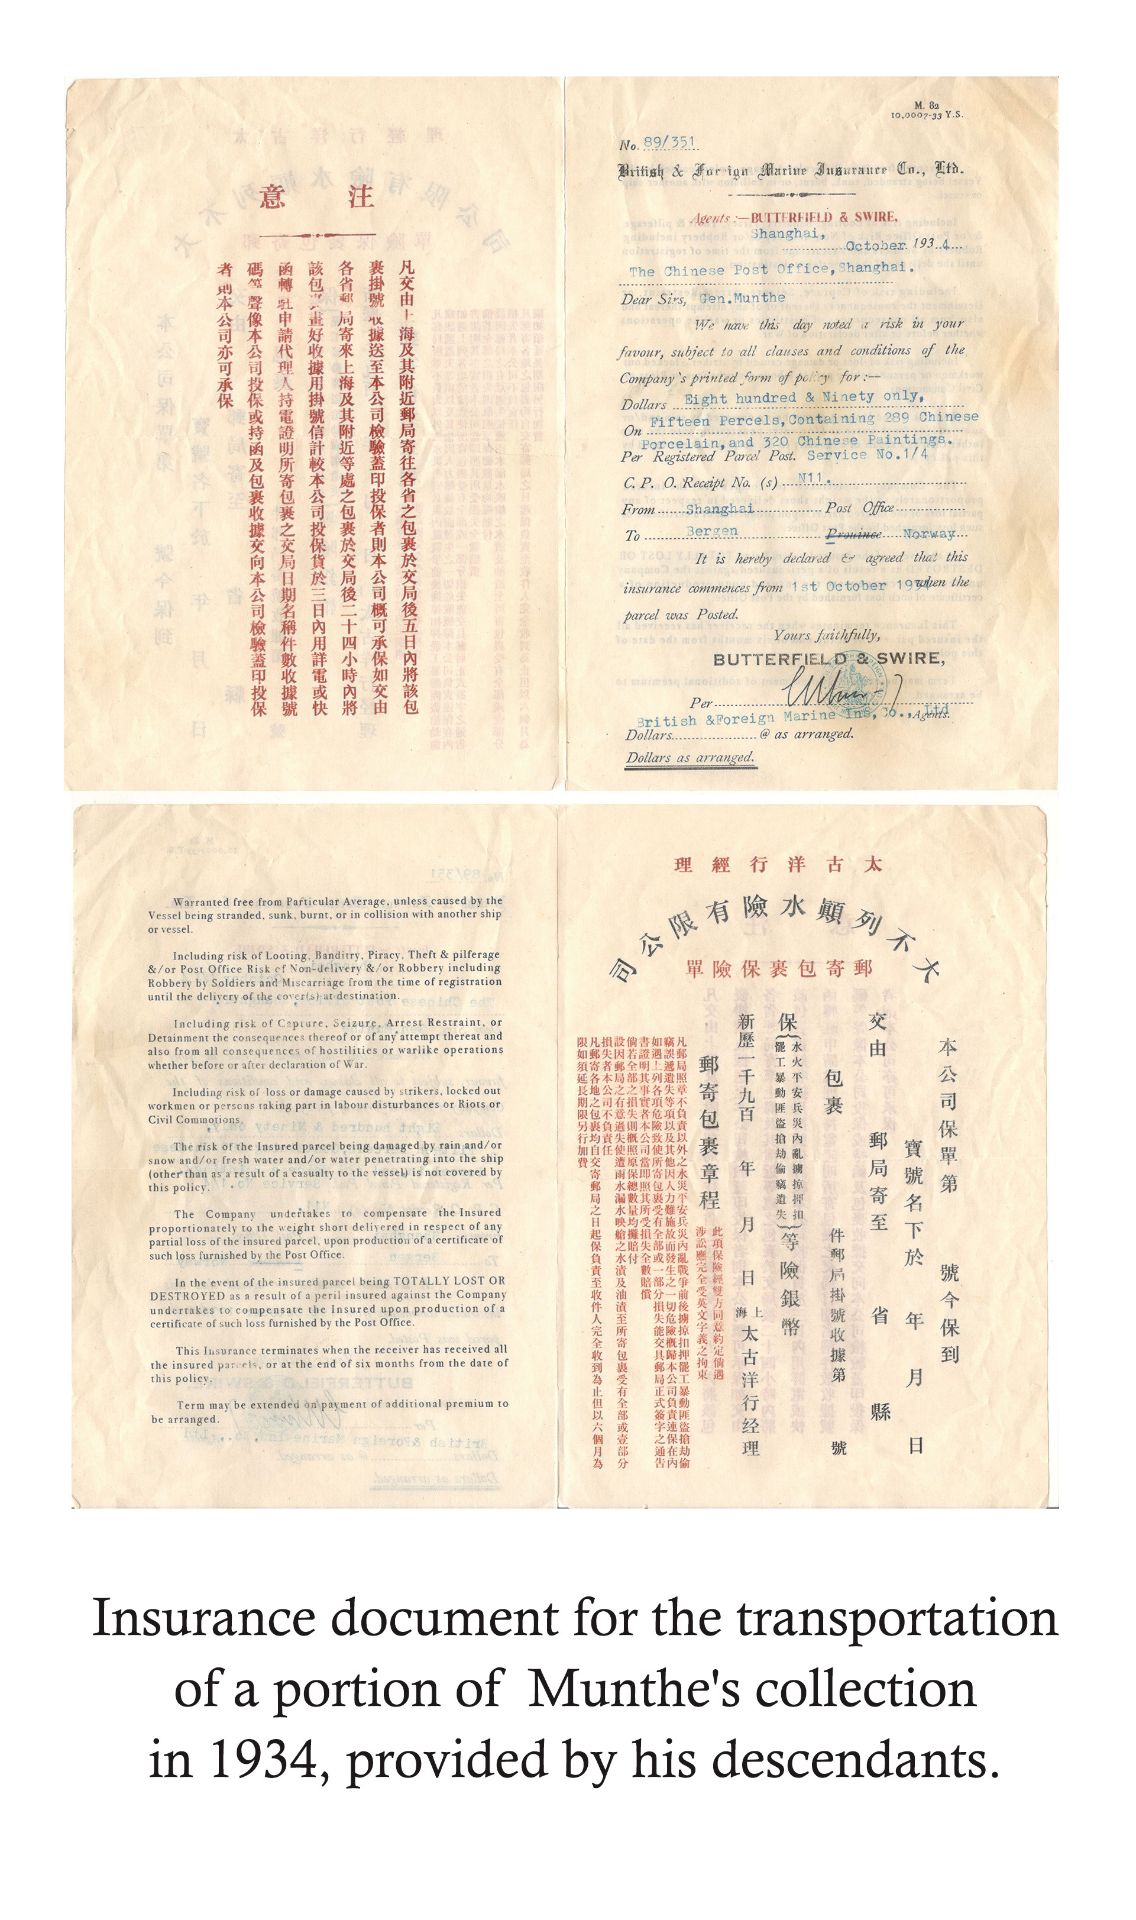 注意
凡交由上海及其附近郵局寄往各省之包裹於交局後五日內將該包
裹掛號收據送至本公司檢驗蓋印投保者則本公司概可承保如交由
各省郵局寄來上海及其附近等處之包裹於交局後二十四小時內將
該包裹畫好收據用掛號信計較本公司投保貨於三日內用詳電或快
函轉駐申請代理人持電證明所寄包裹之交局日期名稱件數收據號
碼等聲像本公司投保或持函及包裹收據交向本公司檢驗蓋印投保
者則本公司亦可承保
M. 82
10,0007-33 Y.S.
No. 89/351.
British & Foreign Marine Insurance Co., Ltd.
Agents :—BUTTERFIELD & SWIRE,
Shanghai, October 1934
The Chinese Post Office, Shanghai.
Dear Sirs, Gen.Munthe
We have this day noted a risk in your
favour, subject to all clauses and conditions of the
Company's printed form of policy for :—
Dollars Eight hundred & Ninety only,
On Fifteen Percels, Containing 289 Chinese
Porcelain, and 320 Chinese Paintings.
Per Registered Parcel Post. Service No.1/4
C. P. O. Receipt No. (s) N11.
From Shanghai Post Office
To Bergen Province Norway
It is hereby declared & agreed that this
insurance commences from 1st October 1934 when the
parcel was Posted.
Yours faithfully,
BUTTERFIELD & SWIRE,
Per
British &Foreign Marine Ins, Co., Ltd Agents.
Dollars @ as arranged.
Dollars as arranged.
Warranted free from Particular Average, unless caused by the
Vessel being stranded, sunk, burnt, or in collision with another ship
or vessel.
Including risk of Looting, Banditry, Piracy, Theft & pilferage
&/or Post Office Risk of Non-delivery &/or Robbery including
Robbery by Soldiers and Miscarriage from the time of registration
until the delivery of the cover(s) at destination.
Including risk of Capture, Seizure, Arrest Restraint, or
Detainment the consequences thereof or of any attempt thereat and
also from all consequences of hostilities or warlike operations
whether before or after declaration of War.
Including risk of loss or damage caused by strikers, locked out
workmen or persons taking part in labour disturbances or Riots or
Civil Commotions.
The risk of the Insured parcel being damaged by rain and/or
snow and/or fresh water and/or water penetrating into the ship
(other than as a result of a casualty to the vessel) is not covered by
this policy.
The Company undertakes to compensate the Insured
proportionately to the weight short delivered in respect of any
partial loss of the insured parcel, upon production of a certificate of
such loss furnished by the Post Office.
In the event of the insured parcel being TOTALLY LOST OR
DESTROYED as a result of a peril insured against the Company
undertakes to compensate the Insured upon production of a
certificate of such loss furnished by the Post Office.
This Insurance terminates when the receiver has received all
the insured parcels, or at the end of six months from the date of
this policy.
Term may be extended on payment of additional premium to
be arranged.
太古洋行經理
大不列顛水險有限公司
郵寄包裹保險單
本公司保單第 號今保到
寶號名下於 年 月 日
交由 郵局寄至 省 縣
包裹 件郵局掛號收據第 號
保
水火平安兵災內亂擄掠押扣
罷工暴動匪盜搶劫偷竊遺失
等險銀幣
新歷一千九百 年 月 日
上海 太古洋行经理
郵寄包裹章程
此項保險經雙方同意約定倘遇
涉訟應完全受英文字義之拘束
凡郵局照章不負責以外之水災平安兵災內亂戰爭前後擄掠扣押罷工暴動匪盜搶劫偷
竊誤遞遺失等項以及其他因人力難施故而發生之一切危險概歸本公司負責連保在內
如遇上列各項危險致使所寄包裹受有全部或一部分損失能交具郵局正式簽字之通告
書證明其事實者本公司當即照其所受損失全數賠償
倘若全部之損失則概照原保總數量均攤賠付
設因郵局之有意過失使遭雨水漏水映艙之水漬及油漬至所寄包裹受有全部或壹部分
損失者本公司不負責任
凡郵寄各地之包裹均自交寄郵局之日起保負責至收件人完全收到為止但以六個月為
限如須延長期限另行加費
Insurance document for the transportation
of a portion of Munthe's collection
in 1934, provided by his descendants.